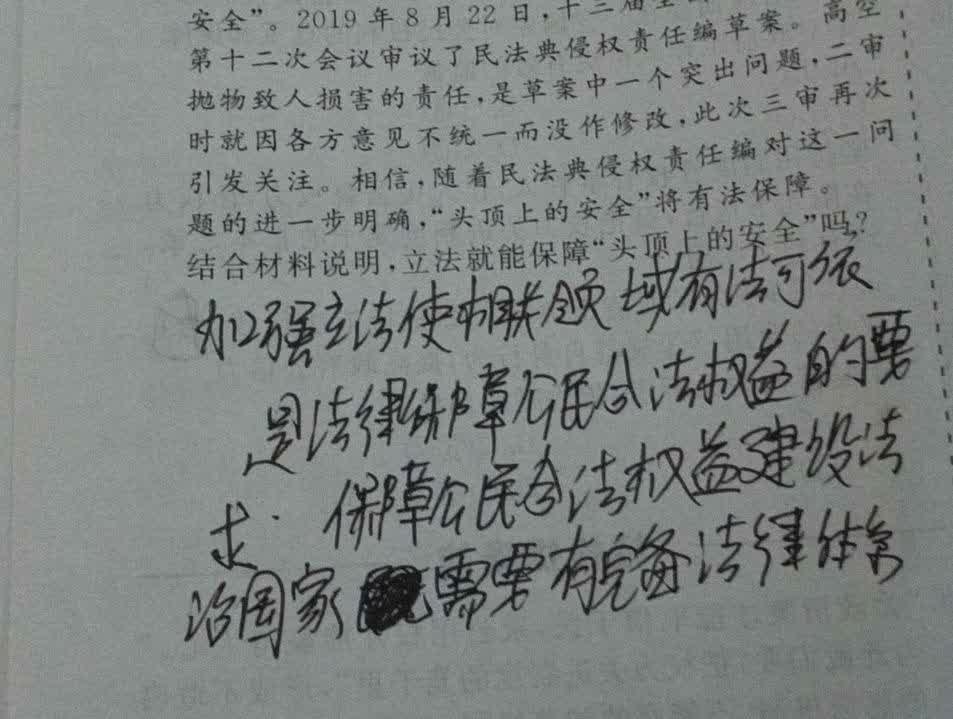 安全”。2019年8月22日，十三届全
第十二次会议审议了民法典侵权责任编草案。高空
抛物致人损害的责任，是草案中一个突出问题，二审
时就因各方意见不统一而没作修改，此次三审再次
引发关注。相信，随着民法典侵权责任编对这一问
题的进一步明确，“头顶上的安全”将有法保障。
结合材料说明，立法就能保障“头顶上的安全”吗？
加强立法使相联领域有法可依
是法律保障公民合法权益的要
求．保障公民合法权益建设法
治国家需要有完备法律体系